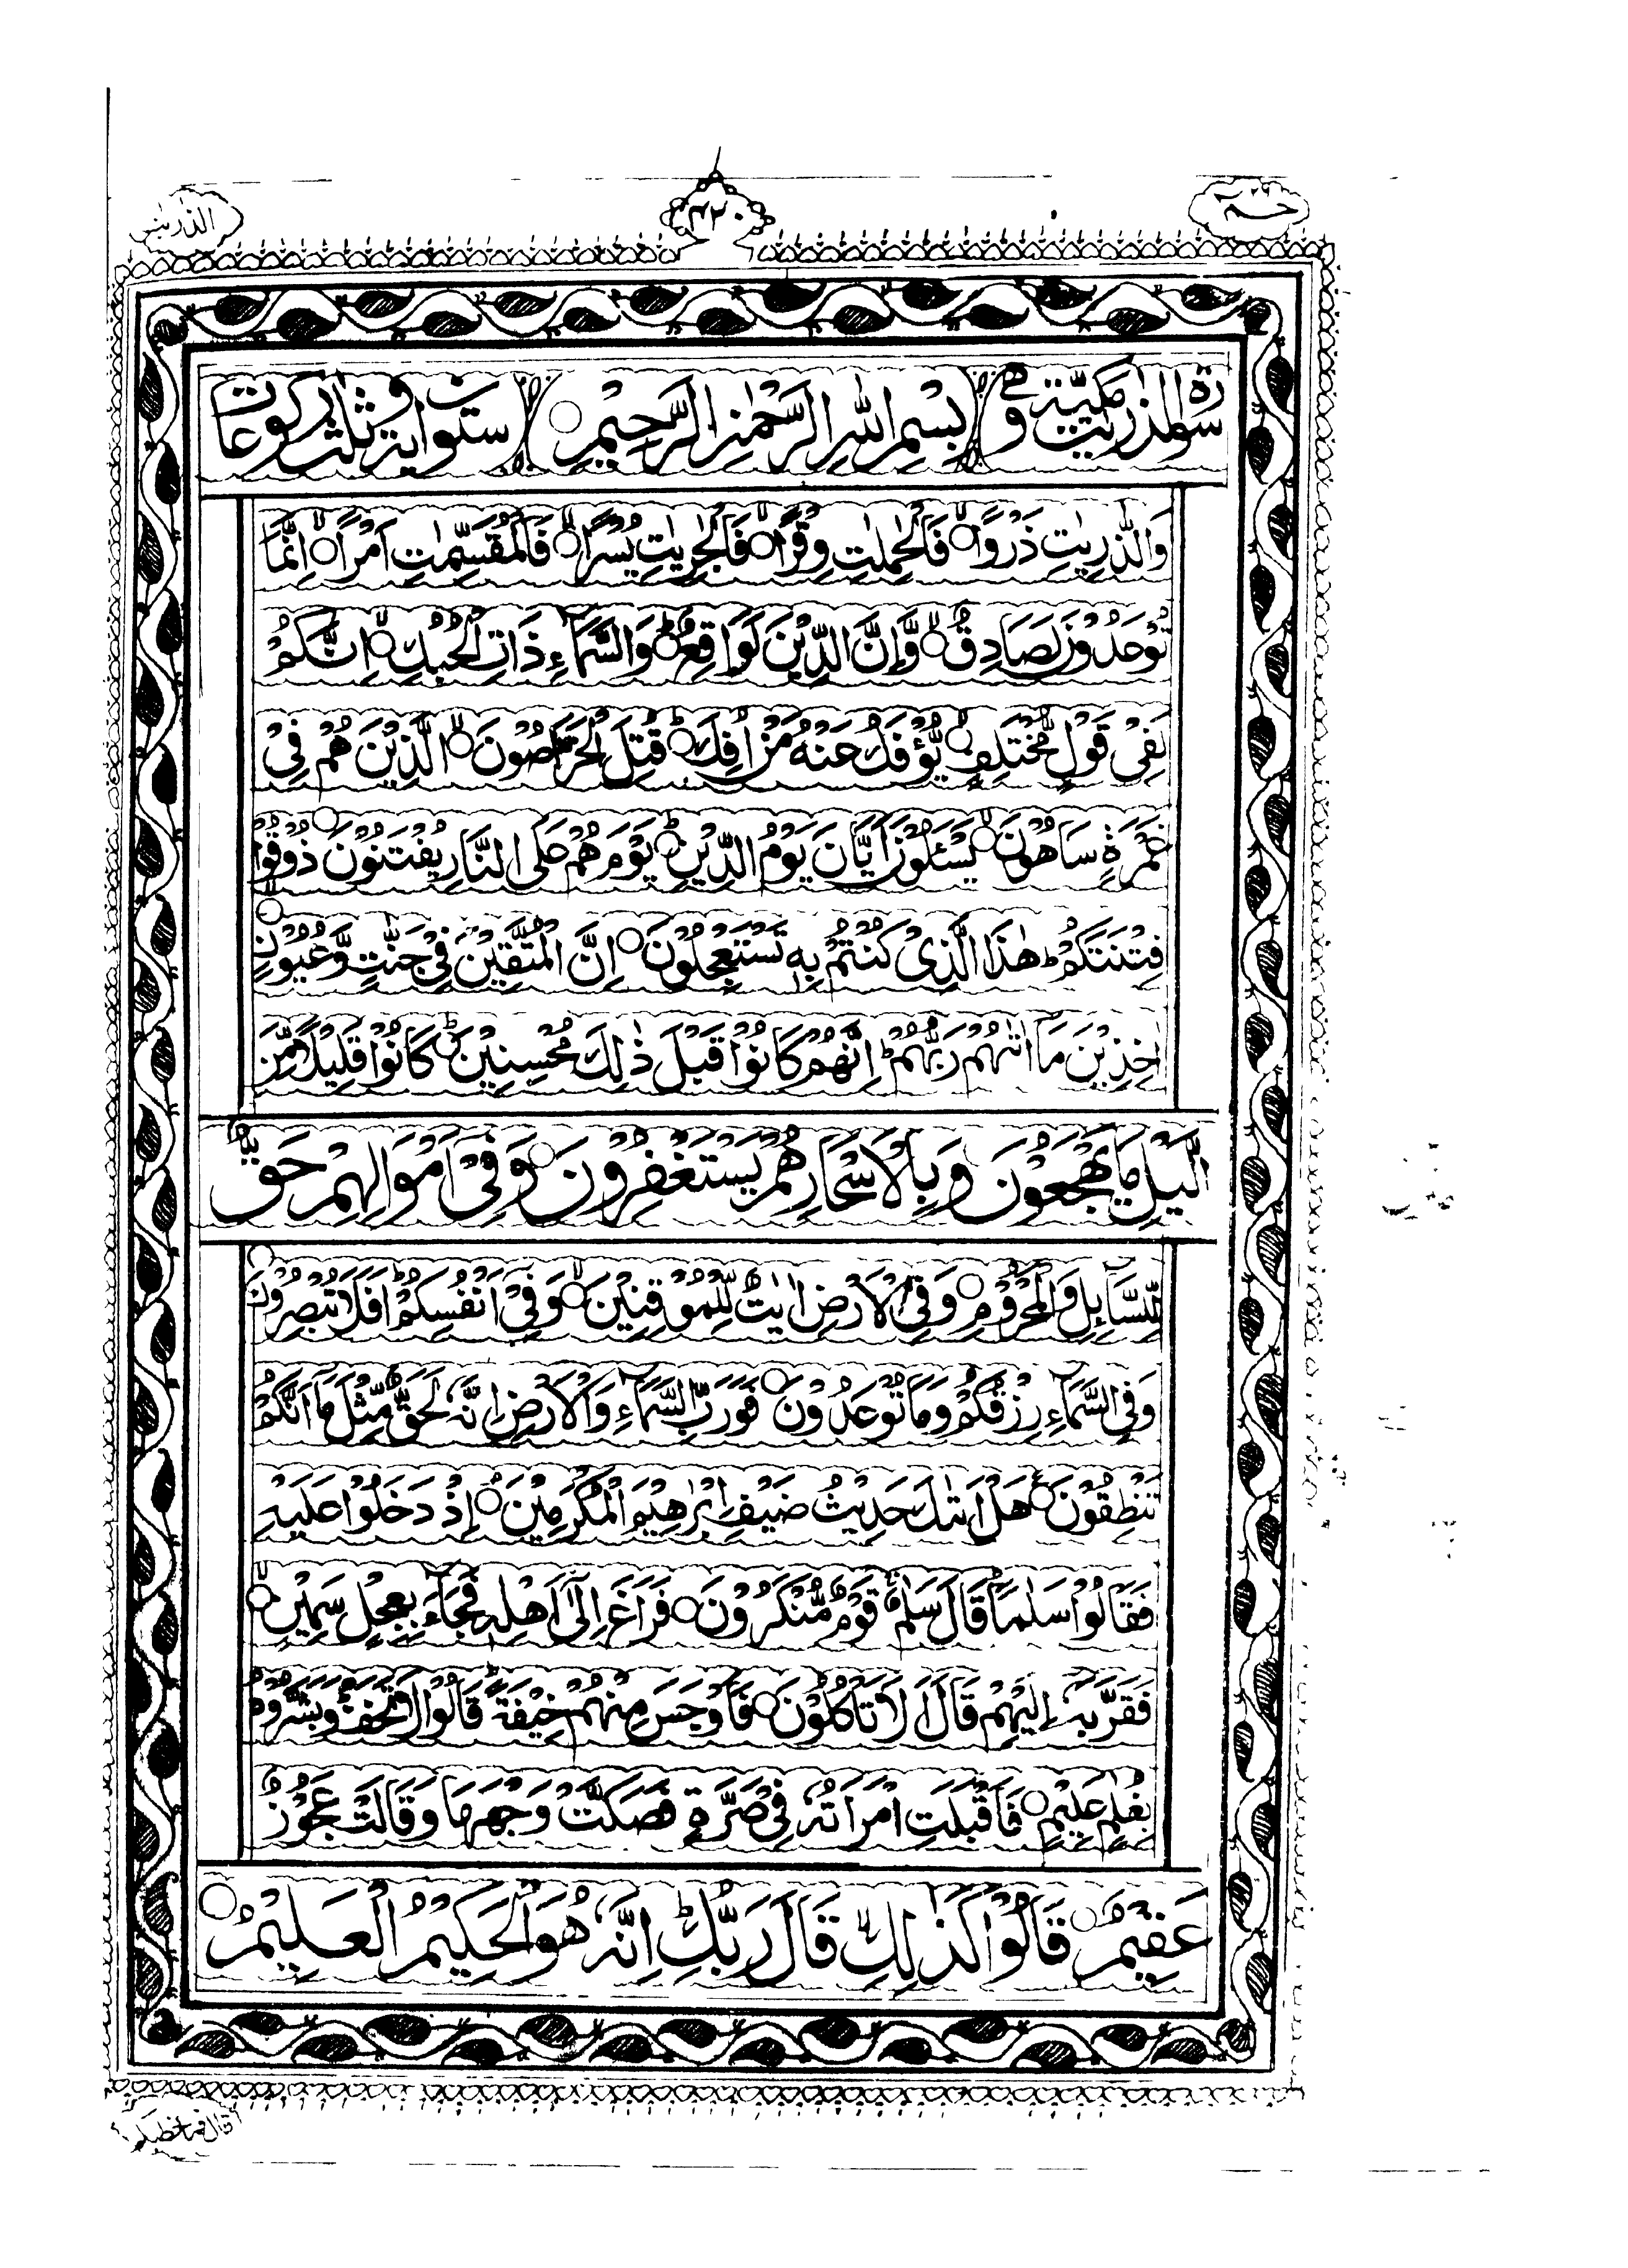 حٰمٓ ٢٦
٤٢٠
الذّٰریٰت
سورة الذریت مکیة وهی
بِسْمِ اللهِ الرَّحْمٰنِ الرَّحِیْمِ
ستون ایة وثلث رکوعات
وَالذّٰرِیٰتِ ذَرْوًا ۙ فَالْحٰمِلٰتِ وِقْرًا ۙ فَالْجٰرِیٰتِ یُسْرًا ۙ فَالْمُقَسِّمٰتِ اَمْرًا ۙ اِنَّمَا
تُوْعَدُوْنَ لَصَادِقٌ ۙ وَّاِنَّ الدِّیْنَ لَوَاقِعٌ ؕ وَالسَّمَآءِ ذَاتِ الْحُبُكِ ۙ اِنَّكُمْ
لَفِیْ قَوْلٍ مُّخْتَلِفٍ ۙ یُّؤْفَكُ عَنْهُ مَنْ اُفِكَ ؕ قُتِلَ الْخَرّٰصُوْنَ ۙ الَّذِیْنَ هُمْ فِیْ
غَمْرَةٍ سَاهُوْنَ ۙ یَسْـَٔلُوْنَ اَیَّانَ یَوْمُ الدِّیْنِ ؕ یَوْمَ هُمْ عَلَی النَّارِ یُفْتَنُوْنَ ذُوْقُوْا
فِتْنَتَكُمْ ؕ هٰذَا الَّذِیْ كُنْتُمْ بِهٖ تَسْتَعْجِلُوْنَ اِنَّ الْمُتَّقِیْنَ فِیْ جَنّٰتٍ وَّعُیُوْنٍ ۙ
اٰخِذِیْنَ مَاۤ اٰتٰىهُمْ رَبُّهُمْ ؕ اِنَّهُمْ كَانُوْا قَبْلَ ذٰلِكَ مُحْسِنِیْنَ ؕ كَانُوْا قَلِیْلًا مِّنَ
الَّیْلِ مَا یَهْجَعُوْنَ وَبِالْاَسْحَارِ هُمْ یَسْتَغْفِرُوْنَ وَفِیْۤ اَمْوَالِهِمْ حَقٌّ
لِّلسَّآئِلِ وَالْمَحْرُوْمِ وَفِی الْاَرْضِ اٰیٰتٌ لِّلْمُوْقِنِیْنَ ۙ وَفِیْۤ اَنْفُسِكُمْ ؕ اَفَلَا تُبْصِرُوْنَ
وَفِی السَّمَآءِ رِزْقُكُمْ وَمَا تُوْعَدُوْنَ فَوَرَبِّ السَّمَآءِ وَالْاَرْضِ اِنَّهٗ لَحَقٌّ مِّثْلَ مَاۤ اَنَّكُمْ
تَنْطِقُوْنَ هَلْ اَتٰىكَ حَدِیْثُ ضَیْفِ اِبْرٰهِیْمَ الْمُكْرَمِیْنَ ۘ اِذْ دَخَلُوْا عَلَیْهِ
فَقَالُوْا سَلٰمًا ؕ قَالَ سَلٰمٌ ۚ قَوْمٌ مُّنْكَرُوْنَ فَرَاغَ اِلٰۤی اَهْلِهٖ فَجَآءَ بِعِجْلٍ سَمِیْنٍ ۙ
فَقَرَّبَهٗۤ اِلَیْهِمْ قَالَ اَلَا تَاْكُلُوْنَ فَاَوْجَسَ مِنْهُمْ خِیْفَةً ؕ قَالُوْا لَا تَخَفْ ؕ وَبَشَّرُوْهُ
بِغُلٰمٍ عَلِیْمٍ فَاَقْبَلَتِ امْرَاَتُهٗ فِیْ صَرَّةٍ فَصَكَّتْ وَجْهَهَا وَقَالَتْ عَجُوْزٌ
عَقِیْمٌ قَالُوْا كَذٰلِكِ ۙ قَالَ رَبُّكِ ؕ اِنَّهٗ هُوَ الْحَكِیْمُ الْعَلِیْمُ
قال فما خطبکم